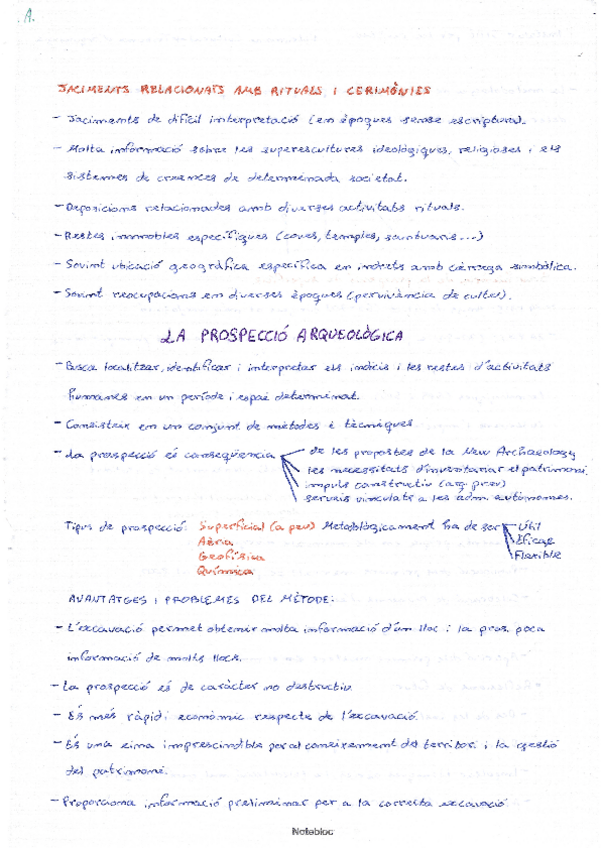 A.
JACIMENTS RELACIONATS AMB RITUALS I CERIMÒNIES
- Jaciments de difícil interpretació (en èpoques sense escriptura).
- Molta informació sobre les superescultures ideològiques, religioses i els
sistemes de creences de determinada societat.
- Deposicions relacionades amb diverses activitats rituals.
- Restes immobles específiques (coves, temples, santuaris...)
- Sovint ubicació geogràfica específica en indrets amb càrrega simbòlica.
- Sovint reocupacions en diverses èpoques (pervivència de cultes).
LA PROSPECCIÓ ARQUEOLÒGICA
- Busca localitzar, identificar i interpretar els indicis i les restes d'activitats
humanes en un període i espai determinat.
- Consisteix en un conjunt de mètodes i tècniques
- La prospecció és conseqüència de les propostes de la New Archaeology
les necessitats d'inventariar el patrimoni
impuls constructiu (arq. prev)
serveis vinculats a les adm. autònomes.
Tipus de prospecció: Superficial (a peu) Metodològicament ha de ser Útil
Aèria Eficaç
Geofísica Flexible
Química
AVANTATGES I PROBLEMES DEL MÈTODE:
- L'excavació permet obtenir molta informació d'un lloc i la pros. poca
informació de molts llocs.
- La prospecció és de caràcter no destructiu.
- És més ràpid i econòmic respecte de l'excavació.
- És una eina imprescindible per al coneixement del territori i la gestió
del patrimoni.
- Proporciona informació preliminar per a la correcta excavació.
Notebloc